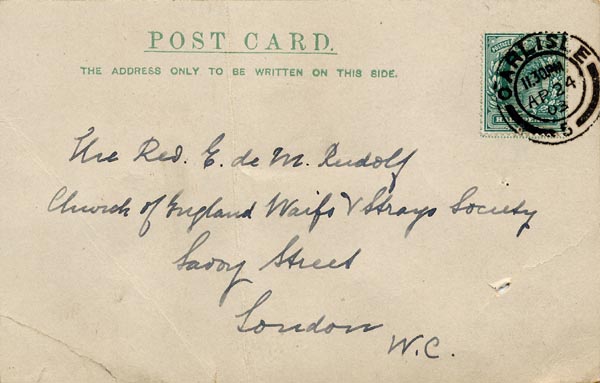 POST CARD.
THE ADDRESS ONLY TO BE WRITTEN ON THIS SIDE.
CARLISLE
11.30AM
AP 24
03
5
The Rev. E. de M. Rudolf
Church of England Waifs & Strays Society
Savoy Street
London
W.C.